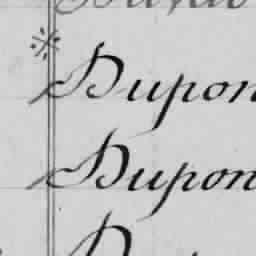 Dupon
Dupon